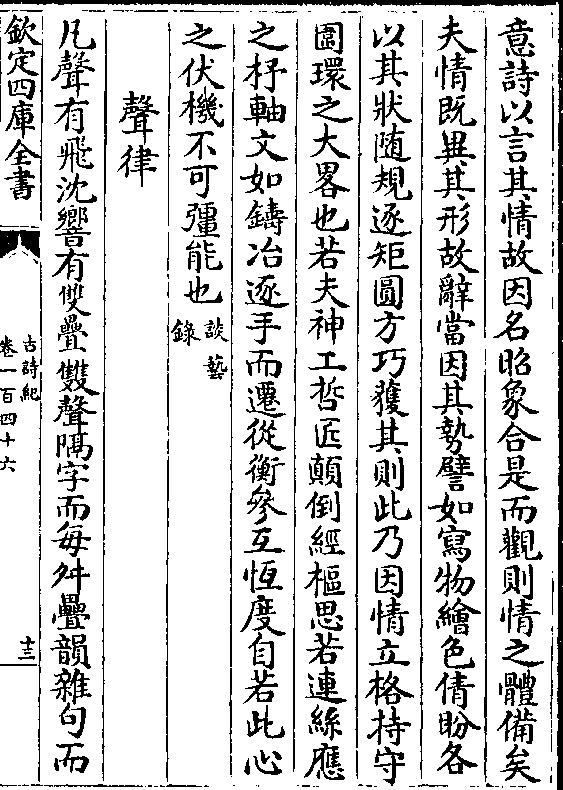 意詩以言其情故因名昭象合是而觀則情之體備矣
夫情既異其形故辭當因其勢譬如寫物繪色倩盼各
以其狀随規逐矩圓方巧獲其則此乃因情立格持守
圍環之大畧也若夫神工哲匠顛倒經樞思若連絲應
之杼軸文如鑄冶逐手而遷從衡參互恆度自若此心
之伏機不可彊能也談藝
錄
聲律
凡聲有飛沈響有雙疊雙聲隔字而每舛疊韻雜句而
欽定四庫全書
古詩紀
卷一百四十六
十三